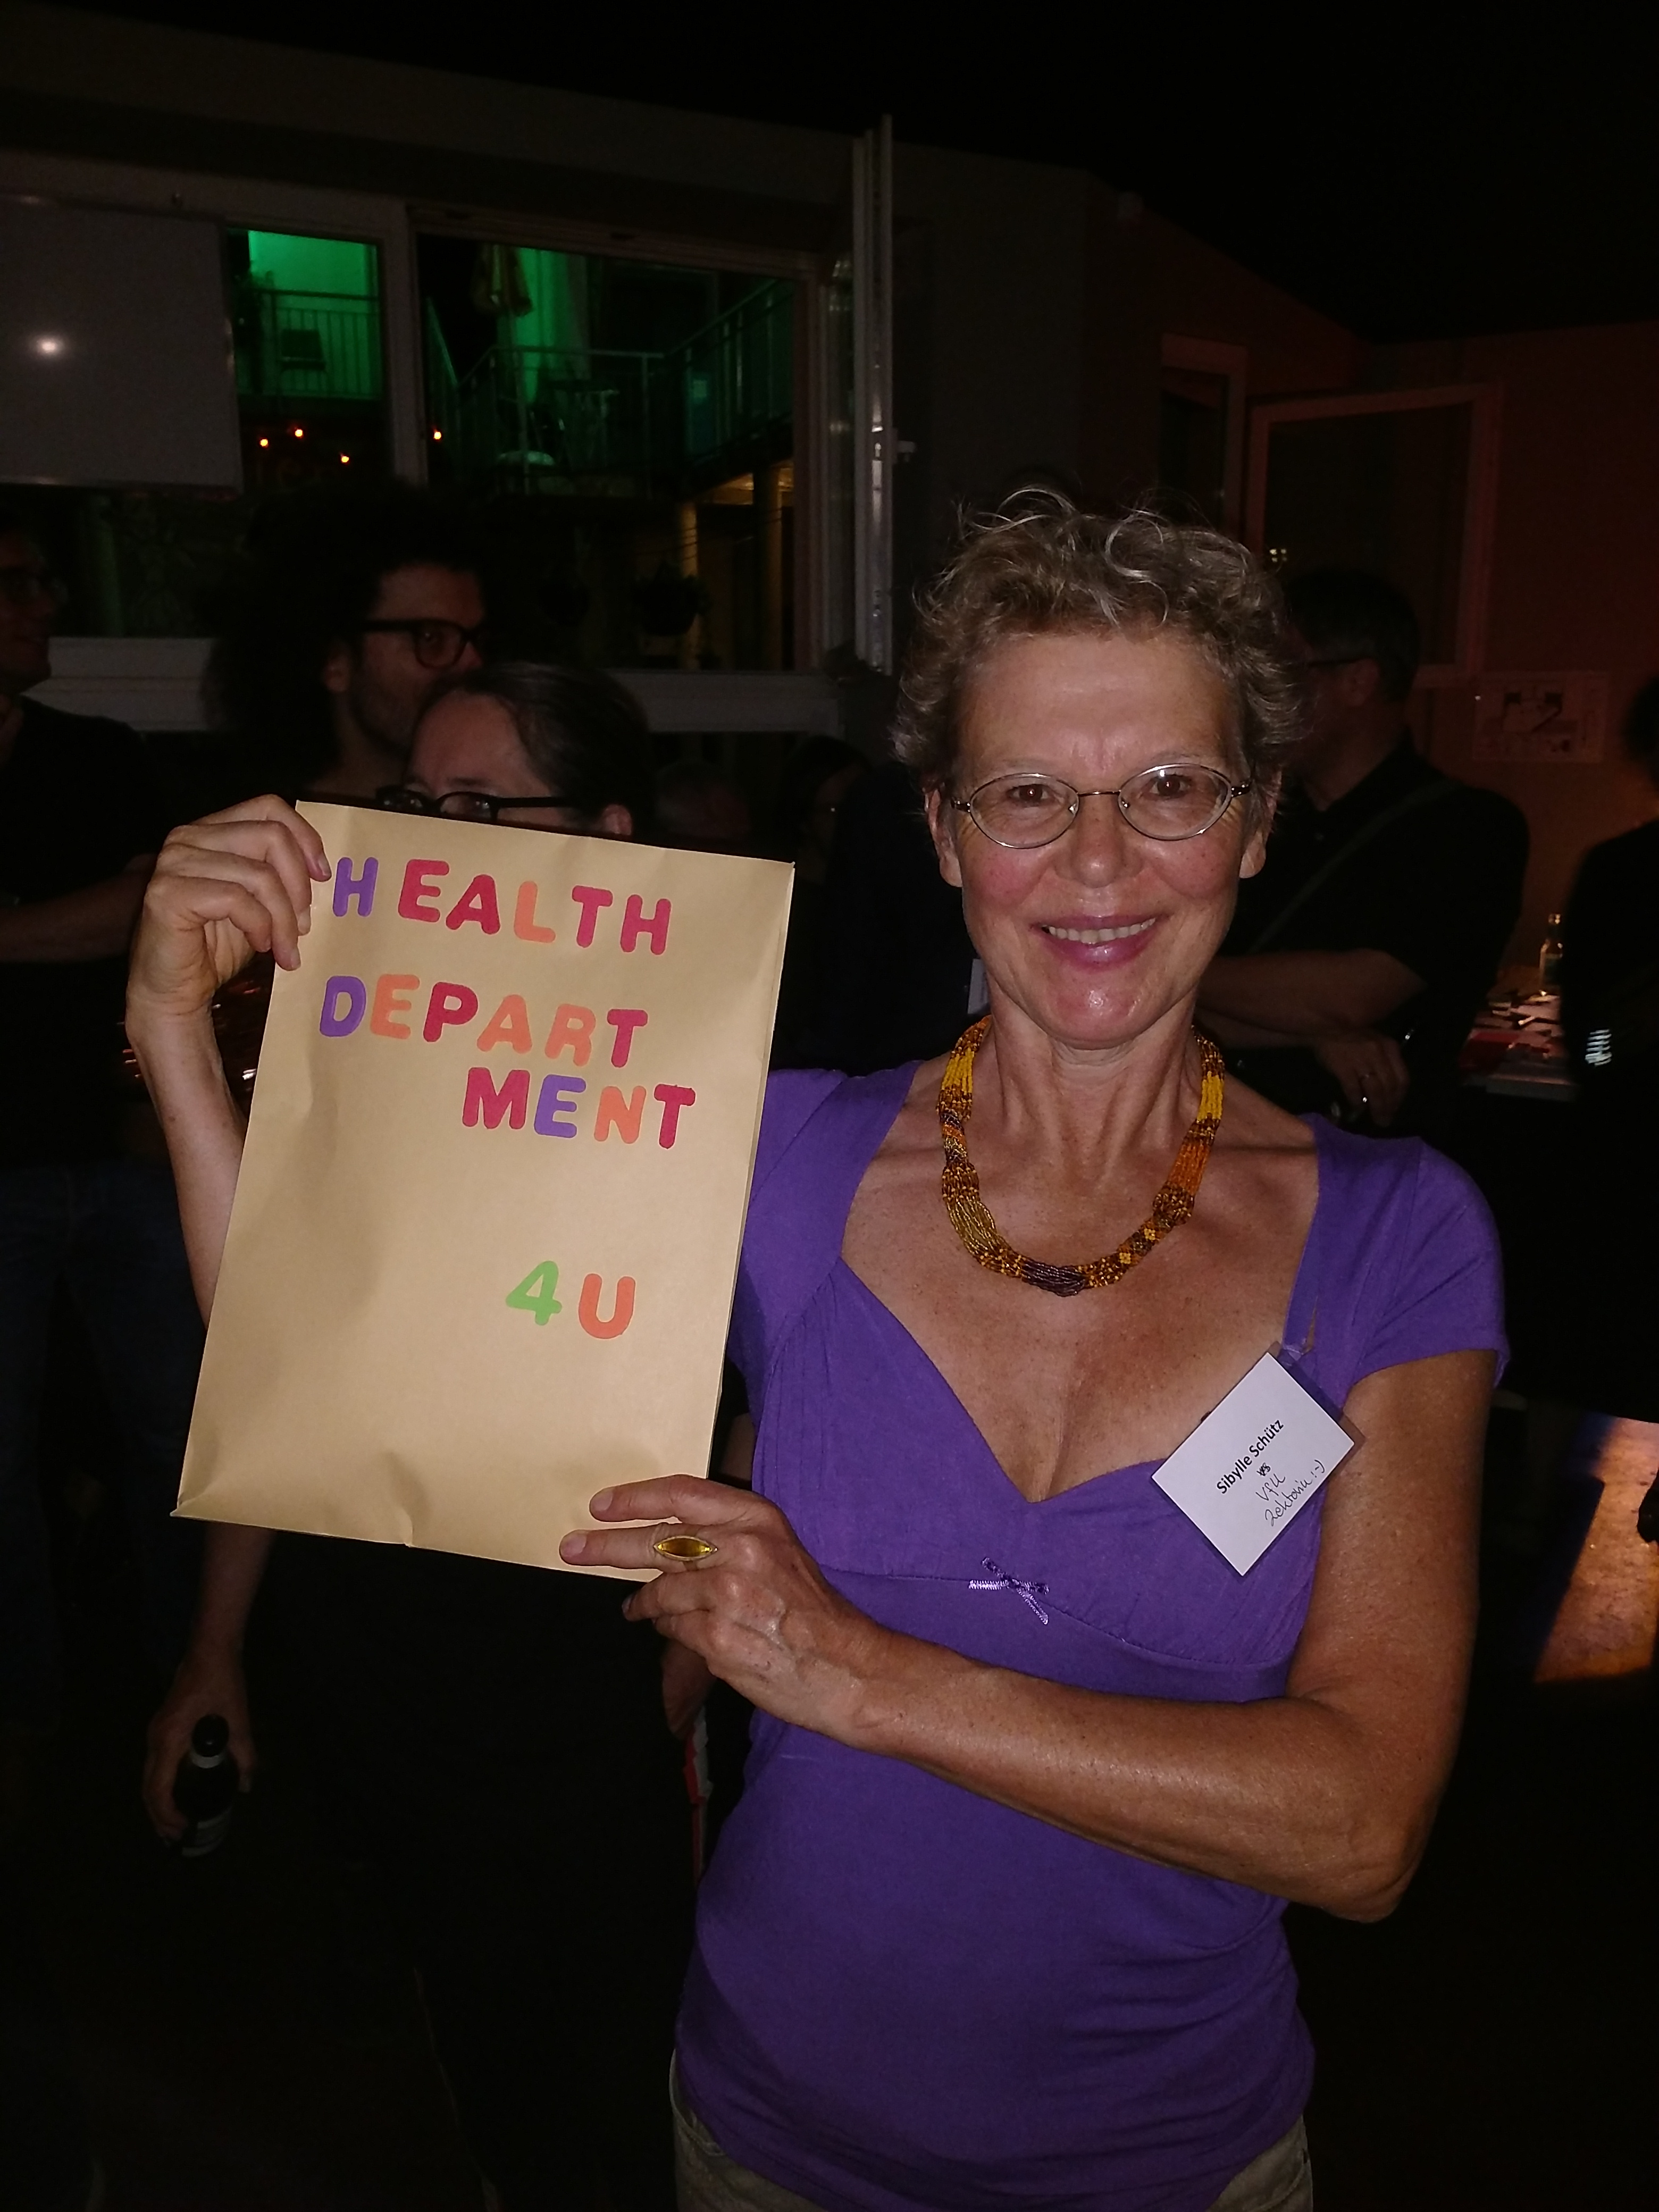 HEALTH
DEPART
MENT
4U
Sibylle Schütz
VfLL